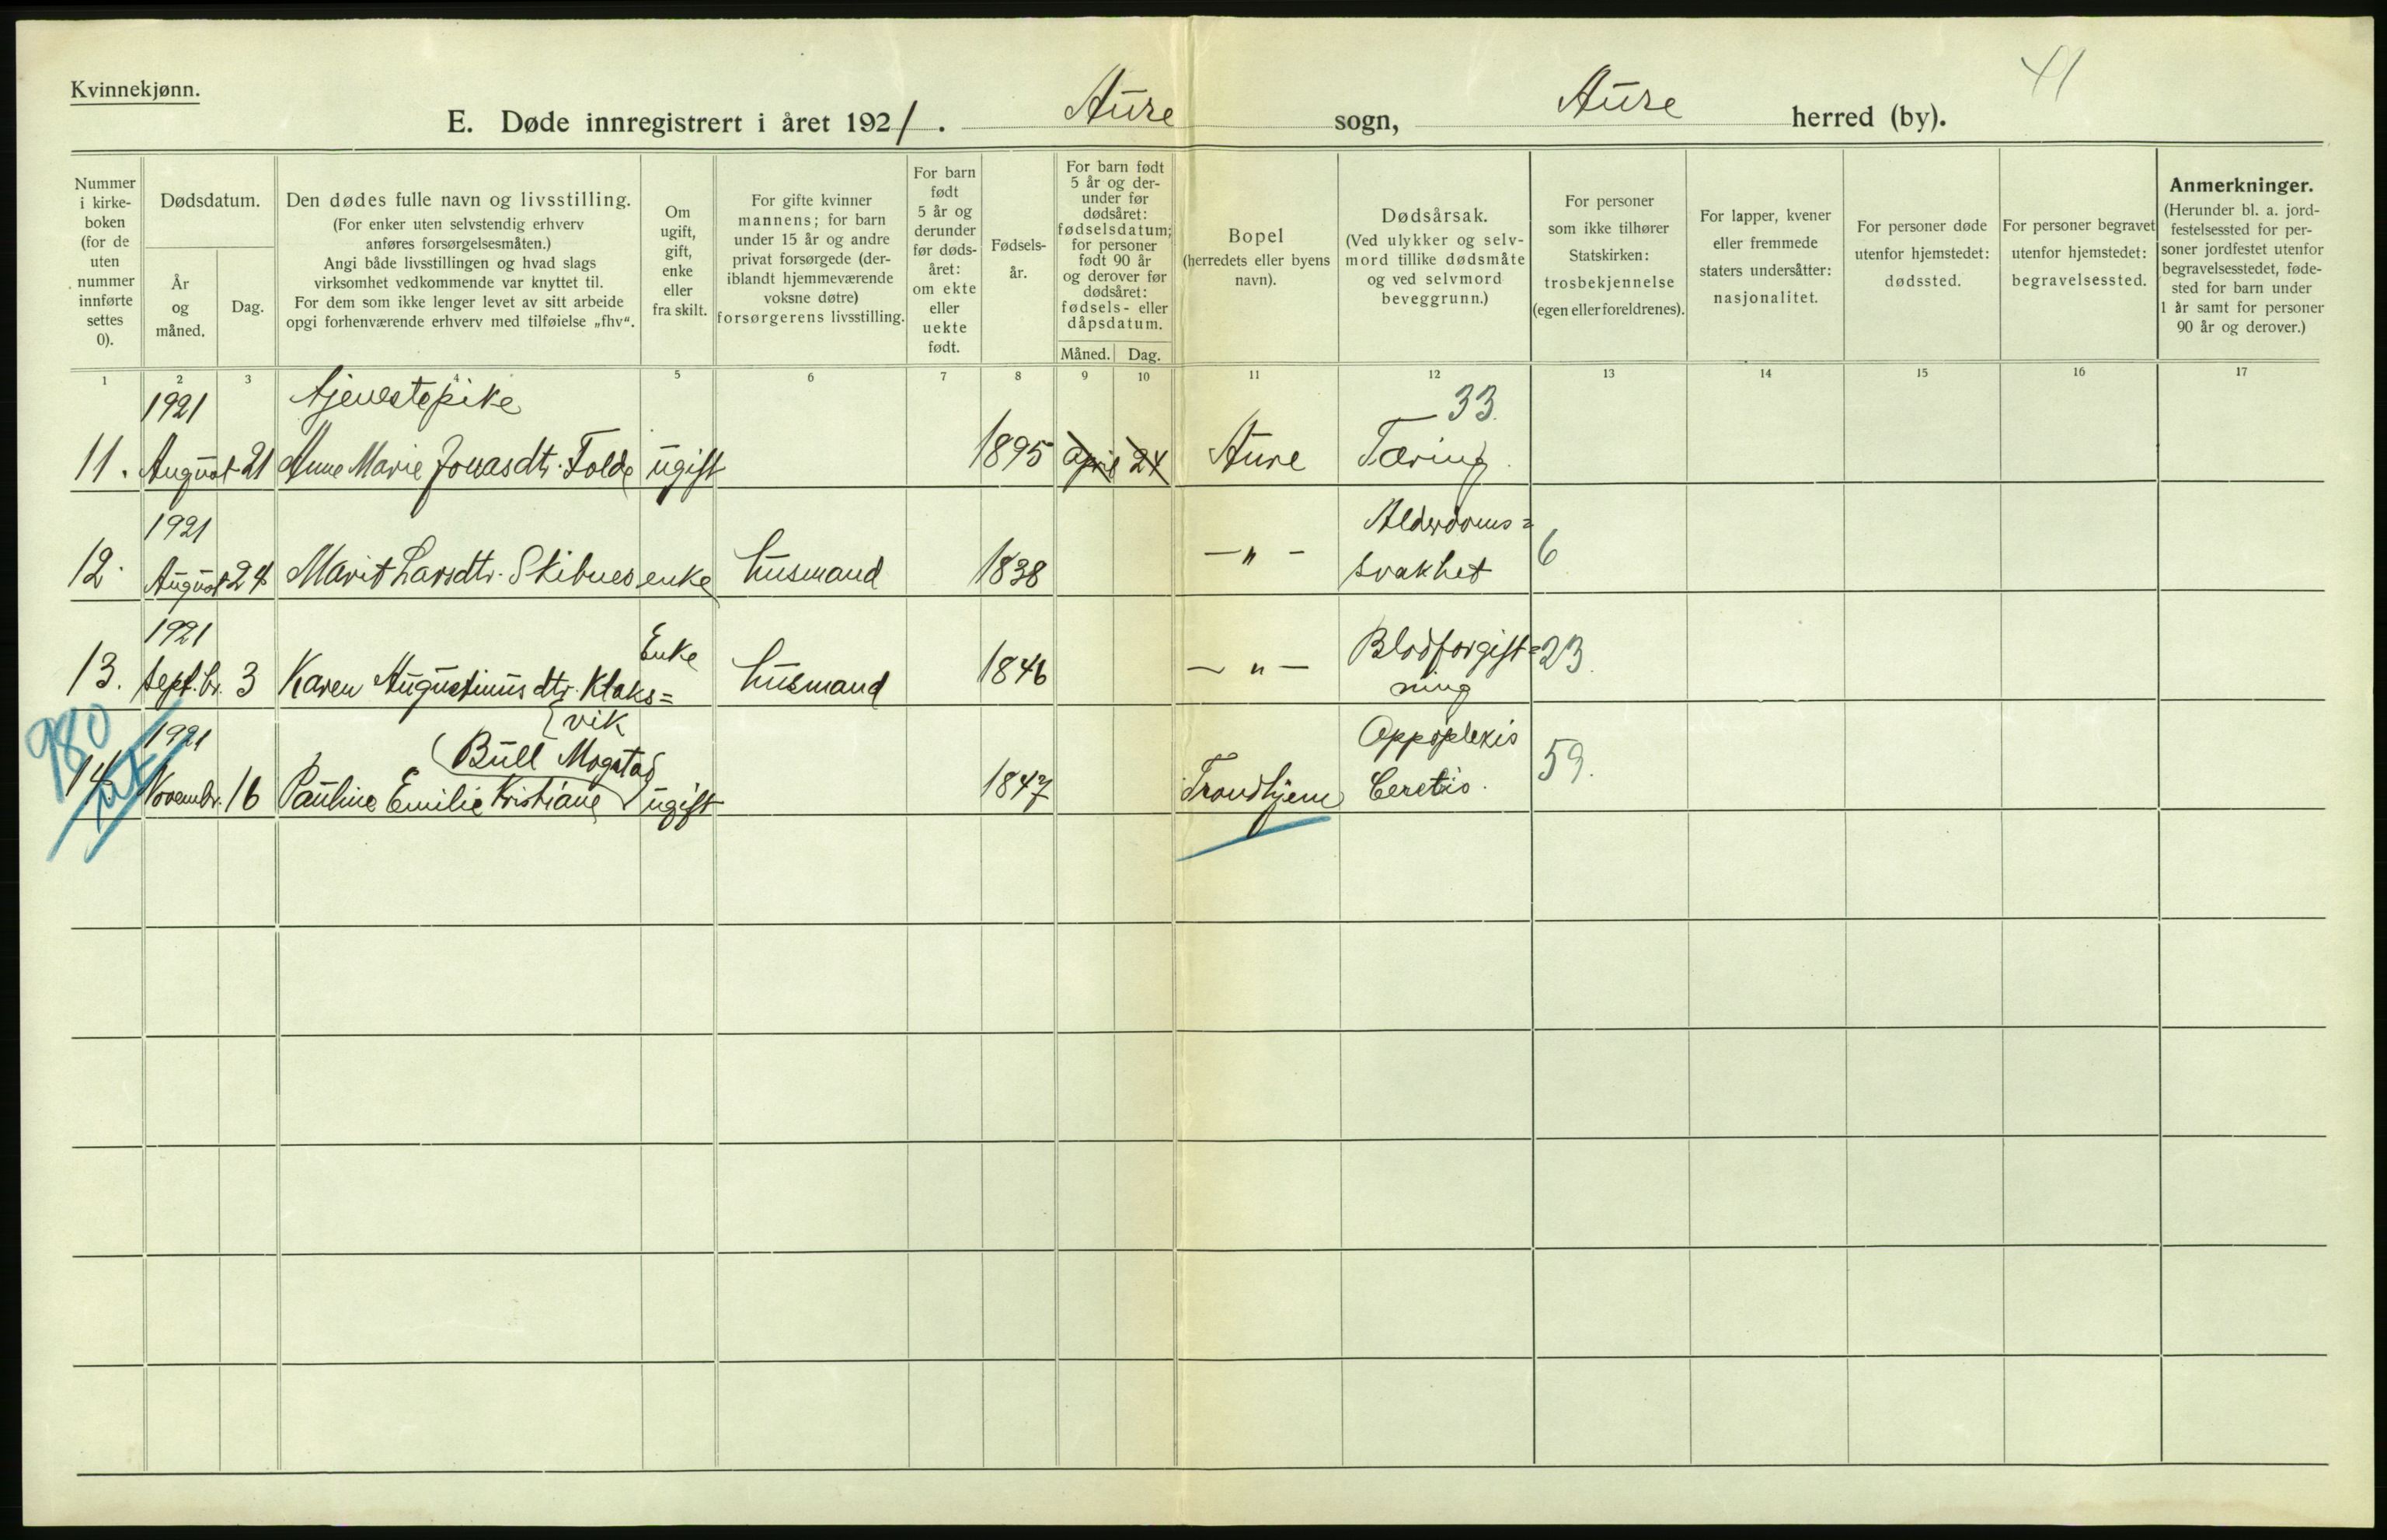 41
Kvinnekjønn.
E. Døde innregistrert i året 1921. Aure sogn, Aure herred (by).
Nummer
i kirke-
boken
(for de
uten
nummer
innførte
settes
0).
Dødsdatum.
År
og
måned.
Dag.
Den dødes fulle navn og livsstilling.
(For enker uten selvstendig erhverv
anføres forsørgelsesmåten.)
Angi både livsstillingen og hvad slags
virksomhet vedkommende var knyttet til.
For dem som ikke lenger levet av sitt arbeide
opgi forhenværende erhverv med tilføielse „fhv“.
Om
ugift,
gift,
enke
eller
fra skilt.
For gifte kvinner
mannens; for barn
under 15 år og andre
privat forsørgede (der-
iblandt hjemmeværende
voksne døtre)
forsørgerens livsstilling.
For barn
født
5 år og
derunder
før døds-
året:
om ekte
eller
uekte
født.
Fødsels-
år.
For barn født
5 år og der-
under før
dødsåret:
fødselsdatum;
for personer
født 90 år
og derover før
dødsåret:
fødsels- eller
dåpsdatum.
Måned. Dag.
Bopel
(herredets eller byens
navn).
Dødsårsak.
(Ved ulykker og selv-
mord tillike dødsmåte
og ved selvmord
beveggrunn.)
For personer
som ikke tilhører
Statskirken:
trosbekjennelse
(egen eller foreldrenes).
For lapper, kvener
eller fremmede
staters undersåtter:
nasjonalitet.
For personer døde
utenfor hjemstedet:
dødssted.
For personer begravet
utenfor hjemstedet:
begravelsessted.
Anmerkninger.
(Herunder bl. a. jord-
festelsessted for per-
soner jordfestet utenfor
begravelsesstedet, føde-
sted for barn under
1 år samt for personer
90 år og derover.)
1 2 3 4 5 6 7 8 9 10 11 12 13 14 15 16 17
1921 tjenestepike 33.
11. August 21 Anne Marie Jonasdtr. Folde ugift 1895 April 24 Aure Tæring.
1921 Alderdoms=
12. August 24 Marit Larsdtr. Skibnes enke husmand 1838 — " — svakhet 6
1921 Enke Blodforgift= 23.
13. Sept.br. 3 Karen Augustinusdtr. Klaks= husmand 1846 — " — ning
vik
980
1921 (Bull Mogstad Appoplexis 59.
14. Novembr. 16 Pauline Emilie Kristiane ugift 1847 Trondhjem Ceretis.